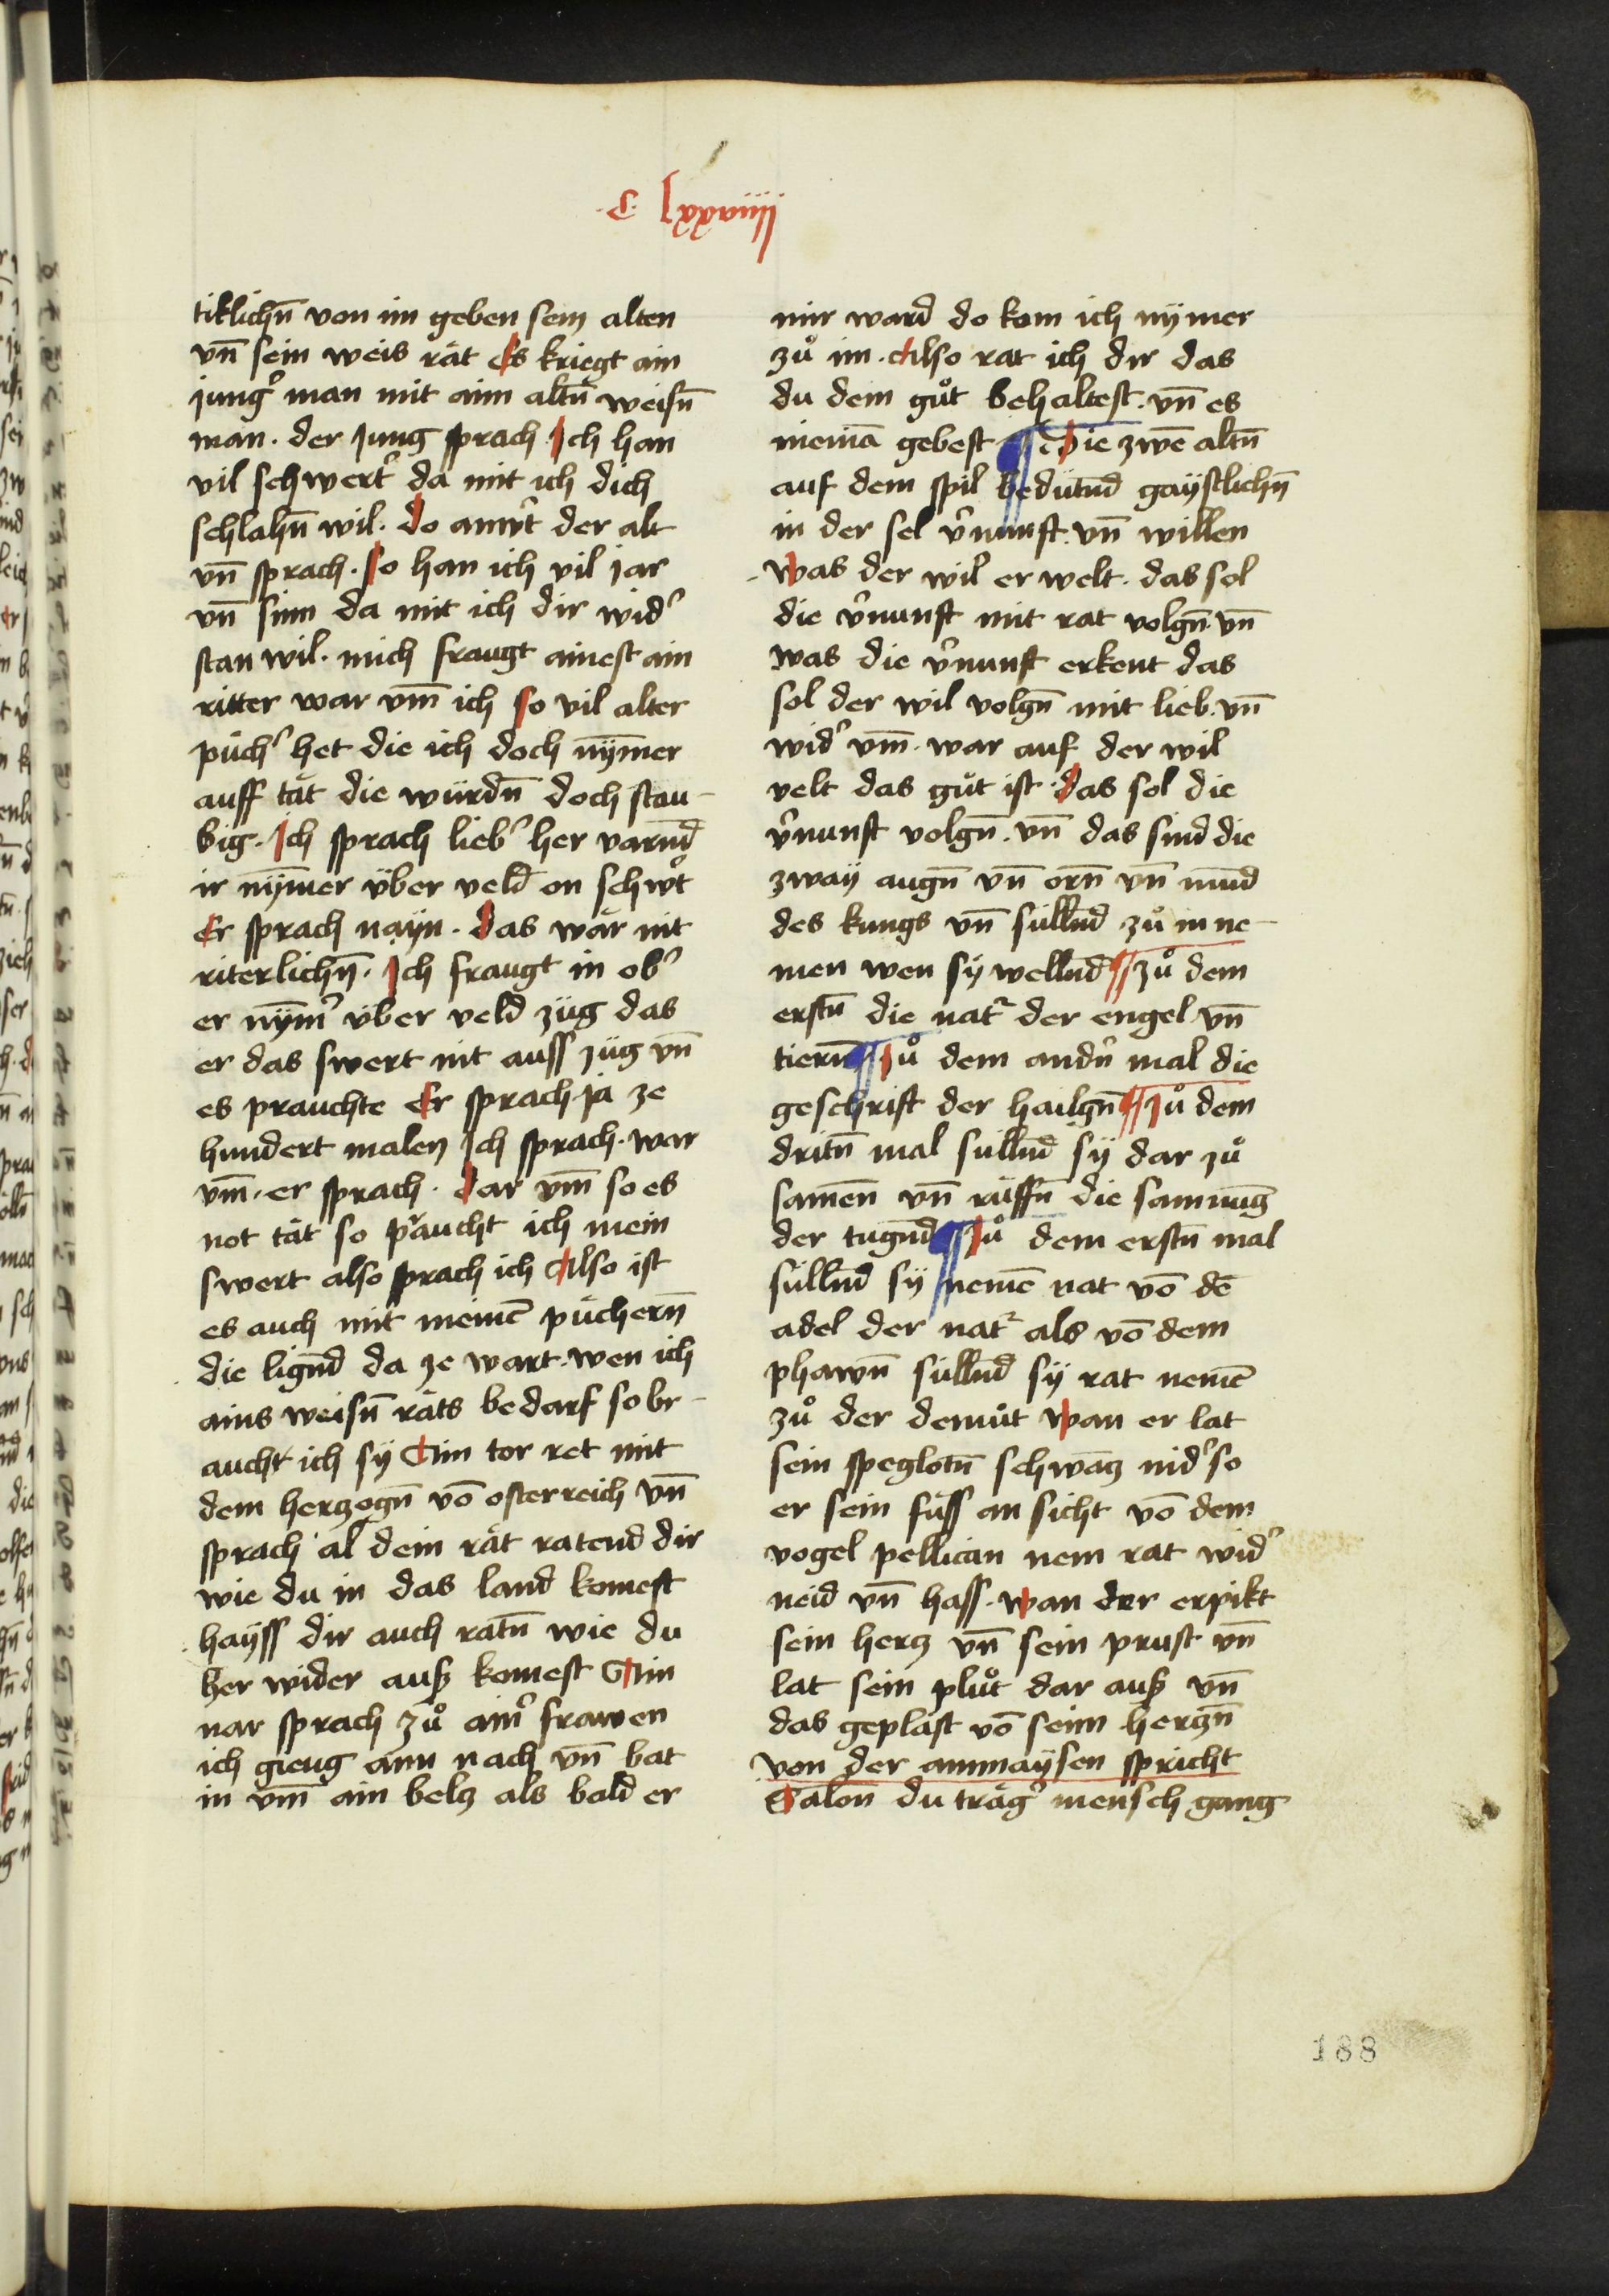 ·C· lxxxviiij
tiklichn̄ von im geben sem alten
vn̄ sein weis rät es kriegt ain
jungˀ man mit aim altn̄ weisn̄
man · der jung sprach Ich han
vil schwertˀ da mit ich dich
schlahn̄ wil · do antwˀt der alt
vn̄ sprach · so han ich vil jar
vn̄ sinn da mit ich dir widˀ
stan wil · mich fraugt ainest ain
ritter war vm̄ ich so vil alter
püchˀ het die ich doch nym̄er
auff tät die würdn̄ doch stau-
big · Ich sprach liebˀ her varn̄d
ir nym̄er über veld on schwˀt
Er sprach nayn · das wär nit
riterlichn̄ · Ich fraugt in obˀ
er nym̄ˀ über veld züg das
er das swert nit auss züg vn̄
es prauchte Er sprach ja ze
hundert malen Ich sprach · war
vm̄ · er sprach · Dar vm̄ so es
not tät so praucht ich mein
swert also sprach ich Also ist
es auch mit meinē püchern̄
die lign̄d da ze wart · wen ich
ains weisn̄ räts bedarf so br-
aucht ich sy Ain tor ret mit
dem herzogn̄ vō osterreich vn̄
sprach al dein rät ratend dir
wie du in das land komest
hayss dir auch ratn̄ wie du
her wider auß komest Ain
nar sprach zů aimˀ frawen
ich gieng aim nach vn̄ bat
in vm̄ ain belz als bald er
mir ward do kom ich nymer
zů im · Also rat ich dir das
du dein gůt behaltest · vn̄ es
niemā gebest ¶ Die zwē altn̄
auf dem spil bedütn̄d gaystlichn̄
in der sel vˀnunft · vn̄ willen
Was der wil er welt · das sol
die vˀnunft mit rat volgn̄ vn̄
was die vˀnunft erkent das
sol der wil volgn̄ mit lieb · vn̄
widˀ vm̄ · war auf der wil
velt das gůt ist · das sol die
vˀnunft volgn̄ · vn̄ das sind die
zway augn̄ vn̄ orn̄ vn̄ mund
des kungs vn̄ süllnd zů in ne-
men wen sy wellnd ¶ zů dem
erstn̄ die natˀ der engel vn̄
tiern̄ ¶ Zů dem andˀn mal die
geschrift der hailgn̄ ¶ Zů dem
dritn̄ mal süllnd sy dar zů
samen̄ vn̄ rüffn̄ die samnūg
der tugn̄d ¶ Zů dem erstn̄ mal
süllnd sy nemē rat vō dē
adel der natˀ als vō dem
phawn̄ süllnd sy rat nemē
zů der demůt wan er lat
sein speglotn̄ schwāz nidˀ so
er sein füss an sicht vō dem
vogel pellican nem rat widˀ
neid vn̄ hass · wan der erpikt
sein herz vn̄ sein prust vn̄
lat sein plůt dar auß vn̄
das geplast vō seim herzn̄
von der ammaysen spricht
Salon̄ du trägˀ mensch gang
188